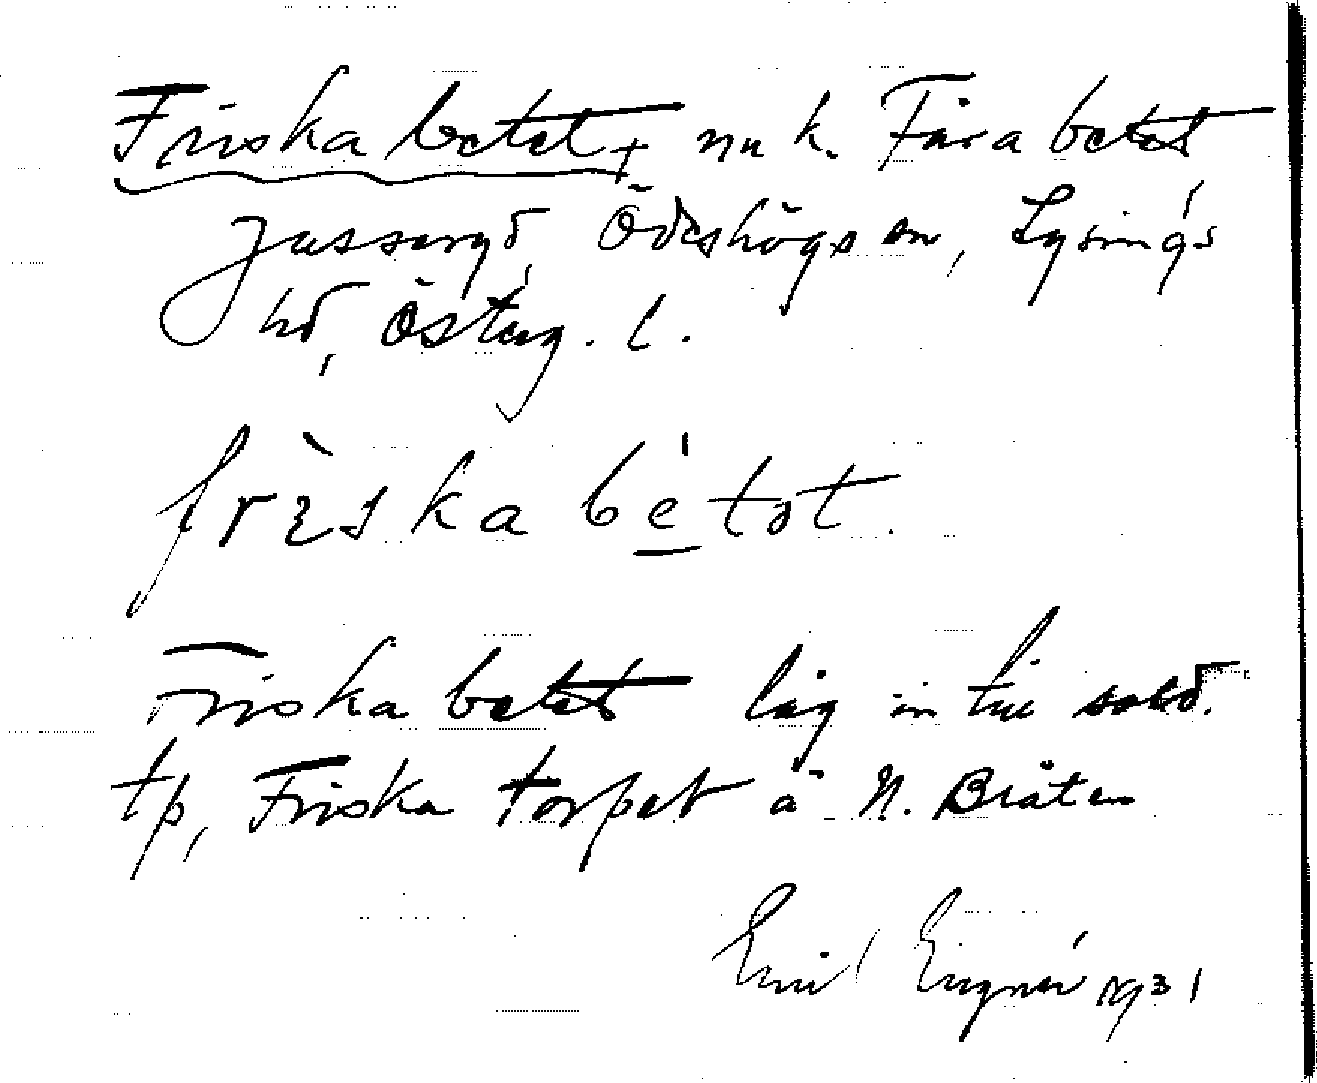 Friska betet, nu k. Fårabetet
Jussaryd, Ödeshögs sn, Lysings
hd, Östergl.
frὲska bétət.
Friska betet låg intill sold.
tp, Friska torpet å N. Bråten
Emil Eignér 1931